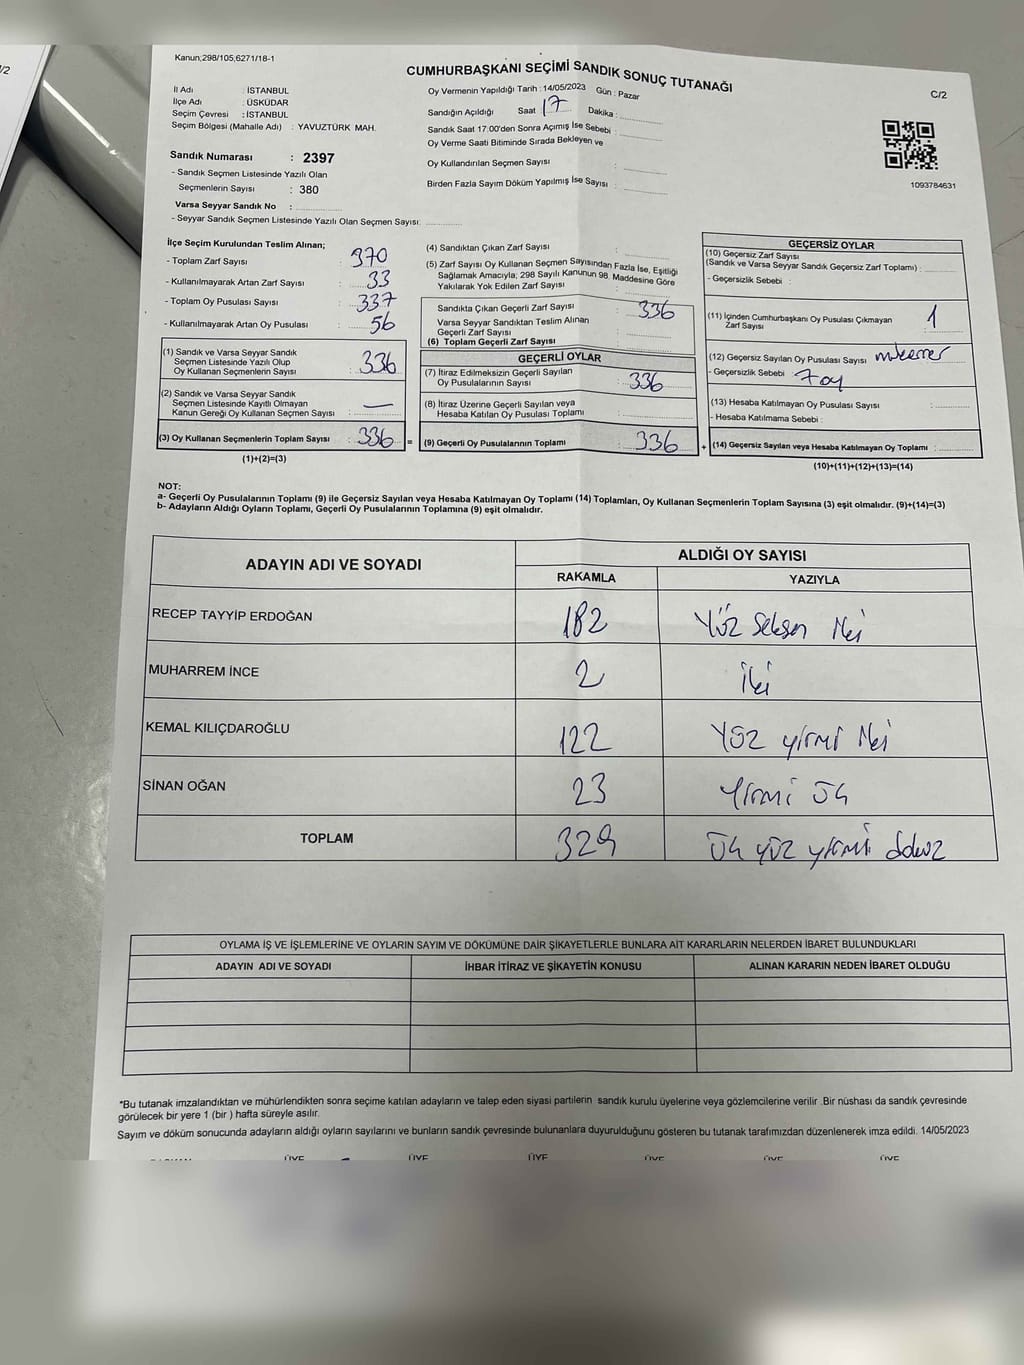 /2
Kanun;298/105;6271/18-1
CUMHURBAŞKANI SEÇİMİ SANDIK SONUÇ TUTANAĞI
C/2
İl Adı : İSTANBUL
İlçe Adı : ÜSKÜDAR
Seçim Çevresi : İSTANBUL
Seçim Bölgesi (Mahalle Adı) : YAVUZTÜRK MAH.
Sandık Numarası : 2397
- Sandık Seçmen Listesinde Yazılı Olan
Seçmenlerin Sayısı : 380
Varsa Seyyar Sandık No :
- Seyyar Sandık Seçmen Listesinde Yazılı Olan Seçmen Sayısı:
Oy Vermenin Yapıldığı Tarih : 14/05/2023 Gün : Pazar
Sandığın Açıldığı Saat : 17 Dakika :
Sandık Saat 17:00'den Sonra Açımış İse Sebebi :
Oy Verme Saati Bitiminde Sırada Bekleyen ve
Oy Kullandırılan Seçmen Sayısı :
Birden Fazla Sayım Döküm Yapılmış İse Sayısı :
1093784631
İlçe Seçim Kurulundan Teslim Alınan;
- Toplam Zarf Sayısı : 370
- Kullanılmayarak Artan Zarf Sayısı : 33
- Toplam Oy Pusulası Sayısı : 337
- Kullanılmayarak Artan Oy Pusulası : 56
(1) Sandık ve Varsa Seyyar Sandık
Seçmen Listesinde Yazılı Olup
Oy Kullanan Seçmenlerin Sayısı : 336
(2) Sandık ve Varsa Seyyar Sandık
Seçmen Listesinde Kayıtlı Olmayan
Kanun Gereği Oy Kullanan Seçmen Sayısı : —
(3) Oy Kullanan Seçmenlerin Toplam Sayısı : 336 =
(1)+(2)=(3)
(4) Sandıktan Çıkan Zarf Sayısı :
(5) Zarf Sayısı Oy Kullanan Seçmen Sayısından Fazla İse, Eşitliği
Sağlamak Amacıyla; 298 Sayılı Kanunun 98. Maddesine Göre
Yakılarak Yok Edilen Zarf Sayısı :
Sandıkta Çıkan Geçerli Zarf Sayısı : 336
Varsa Seyyar Sandıktan Teslim Alınan
Geçerli Zarf Sayısı :
(6) Toplam Geçerli Zarf Sayısı :
GEÇERLİ OYLAR
(7) İtiraz Edilmeksizin Geçerli Sayılan
Oy Pusulalarının Sayısı : 336
(8) İtiraz Üzerine Geçerli Sayılan veya
Hesaba Katılan Oy Pusulası Toplamı :
(9) Geçerli Oy Pusulalarının Toplamı : 336 +
GEÇERSİZ OYLAR
(10) Geçersiz Zarf Sayısı
(Sandık ve Varsa Seyyar Sandık Geçersiz Zarf Toplamı) :
- Geçersizlik Sebebi :
(11) İçinden Cumhurbaşkanı Oy Pusulası Çıkmayan
Zarf Sayısı : 1
(12) Geçersiz Sayılan Oy Pusulası Sayısı :
- Geçersizlik Sebebi : 7 oy
(13) Hesaba Katılmayan Oy Pusulası Sayısı :
- Hesaba Katılmama Sebebi :
(14) Geçersiz Sayılan veya Hesaba Katılmayan Oy Toplamı :
(10)+(11)+(12)+(13)=(14)
NOT:
a- Geçerli Oy Pusulalarının Toplamı (9) ile Geçersiz Sayılan veya Hesaba Katılmayan Oy Toplamı (14) Toplamları, Oy Kullanan Seçmenlerin Toplam Sayısına (3) eşit olmalıdır. (9)+(14)=(3)
b- Adayların Aldığı Oyların Toplamı, Geçerli Oy Pusulalarının Toplamına (9) eşit olmalıdır.
ADAYIN ADI VE SOYADI
ALDIĞI OY SAYISI
RAKAMLA YAZIYLA
RECEP TAYYİP ERDOĞAN 182 Yüz Seksen iki
MUHARREM İNCE 2 iki
KEMAL KILIÇDAROĞLU 122 Yüz yirmi iki
SİNAN OĞAN 23 Yirmi üç
TOPLAM 329 üç yüz yirmi dokuz
OYLAMA İŞ VE İŞLEMLERİNE VE OYLARIN SAYIM VE DÖKÜMÜNE DAİR ŞİKAYETLERLE BUNLARA AİT KARARLARIN NELERDEN İBARET BULUNDUKLARI
ADAYIN ADI VE SOYADI İHBAR İTİRAZ VE ŞİKAYETİN KONUSU ALINAN KARARIN NEDEN İBARET OLDUĞU
*Bu tutanak imzalandıktan ve mühürlendikten sonra seçime katılan adayların ve talep eden siyasi partilerin sandık kurulu üyelerine veya gözlemcilerine verilir .Bir nüshası da sandık çevresinde
görülecek bir yere 1 (bir ) hafta süreyle asılır.
Sayım ve döküm sonucunda adayların aldığı oyların sayılarını ve bunların sandık çevresinde bulunanlara duyurulduğunu gösteren bu tutanak tarafımızdan düzenlenerek imza edildi. 14/05/2023
ÜYE ÜYE ÜYE ÜYE ÜYE ÜYE